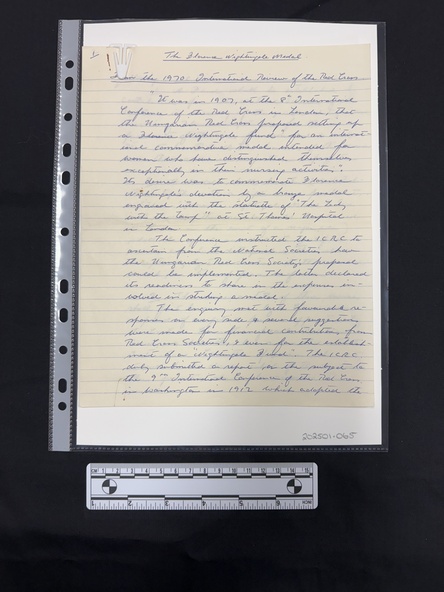 1
The Florence Nightingale Medal
From the 1970 International Review of the Red Cross
"It was in 1907, at the 8th International
Conference of the Red Cross in London, that
the Hungarian Red Cross proposed setting up
a Florence Nightingale fund" for an internat-
ional commemorative medal intended for
women who have distinguished themselves
exceptionally in their nursing activities".
Its desire was to commemorate Florence
Nightingale's devotion by a bronze medal
engraved with the statuette of "The Lady
with the Lamp" at St. Thomas' Hospital
in London
The Conference instructed the ICRC to
ascertain from the National Societies how
the Hungarian Red Cross Society's proposal
could be implemented. The latter declared
its readiness to share in the expenses in-
volved in striking a medal.
The enquiry met with favourable re-
sponse on every side & several suggestions
were made for financial contributions from
Red Cross Societies & even for the establish-
ment of a Nightingale Fund. The ICRC
duly submitted a report on the subject to
the 9th International Conference of the Red Cross
in Washington in 1912 which adopted the
202501-065